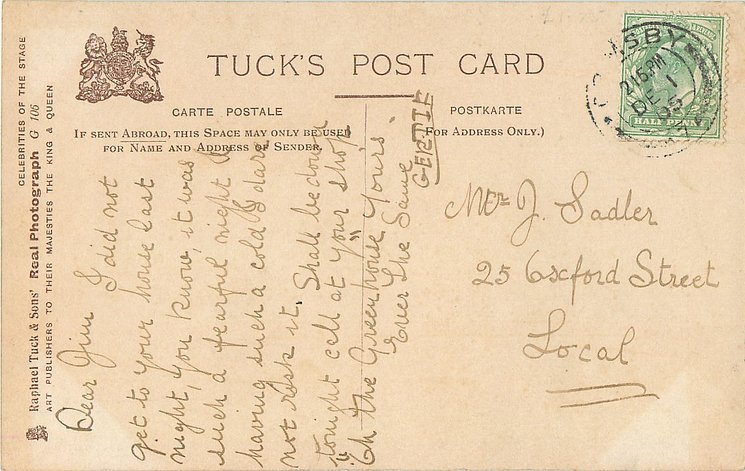 TUCK'S POST CARD
CARTE POSTALE
POSTKARTE
IF SENT ABROAD, THIS SPACE MAY ONLY BE USED
FOR NAME AND ADDRESS OF SENDER.
(FOR ADDRESS ONLY.)
CELEBRITIES OF THE STAGE
Raphael Tuck & Sons' Real Photograph G 106
ART PUBLISHERS TO THEIR MAJESTIES THE KING & QUEEN
Dear Jim I did not
get to your house last
night, you know, it was
such a fearful night &
having such a cold I dare
not risk it. Shall be down
tonight call at your shop
"In the Greenhouse" Yours
Ever the Same
GERTIE
Mr J. Sadler
25 Oxford Street
Local
MSBY
2 15 PM
DE 1
05
HALF PENNY